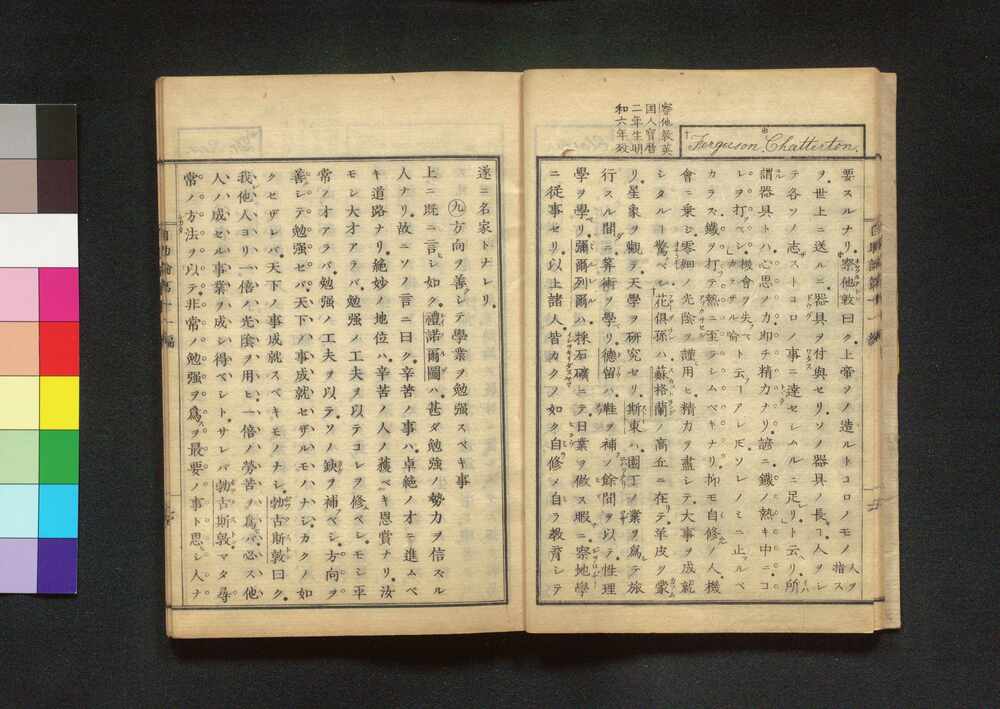 Ferguson. Chatterton.
察他敦英
国人寶暦
二年生明
和六年歿
要スルナリ察他敦曰ク上帝ヲノ造ルトコロノモノ人ヲ指ス
ヲ世上ニ送ルニ器具ヲ付與セリソノ器具ノ長ヿ人ヲシ
テ各ソノ志ストコロノ事ニ達セシムルニ足レリト云リ所
謂器具トハ心思ノ力卽チ精力ナリ諺ニ鐵ノ熱キ中ニコ
レヲ打ベシ機會ヲ失ベカラザル喩ト云ーアレ𪜈ソレノミニ止ルベ
カラズ鐵ヲ打テ熱ニ至ラシムベキナリ抑モ自修ノ人機
會ニ乗シ零細ノ光陰ヲ謹用ヒ精力ヲ盡シテ大事ヲ成就
シタルー驚ベシ花倶孫ハ蘇格蘭ノ高丘ニ在テ羊皮ヲ蒙
リ星象ヲ觀テ天學ヲ研究セリ斯東ハ園丁ノ業ヲ爲テ旅
行スル間ニ算術ヲ學リ德留ハ鞋ヲ補ノ餘間ヲ以テ性理
學ヲ學リ彌爾列爾ハ採石礦ニテ日業ヲ做ス暇ニ察地學
ニ從事セリ以上諸人皆カクノ如ク自修メ自ラ教育シテ
遂ニ名家トナレリ
九方向ヲ善シテ學業ヲ勉强スベキ事
上ニ既ニ言シ如ク禮諾爾圖ハ甚ダ勉强ノ勢力ヲ信ズル
人ナリ故ニソノ言ニ曰ク辛苦ノ事ハ卓絶ノオニ進ムベ
キ道路ナリ絶妙ノ地位ハ辛苦ノ人ノ獲ベキ恩賞ナリ汝
モシ大才アラバ勉强ノ工夫ヲ以テコレヲ修ベシモシ平
常ノ才アラバ勉强ノ工夫ヲ以テソノ缺ヲ補ベシ方向ヲ
善シテ勉强セバ天下ノ事成就セザルモノハナシカクノ如
クセザレバ天下ノ事成就スベキモノナシ勃古斯敦曰ク
我他人ヨリ一倍ノ光陰ヲ用ヒ一倍ノ勞苦ヲ爲バ必ス他
人ノ成セル事業ヲ成シ得ベシトサレバ勃古斯敦マタ尋
常ノ方法ヲ以テ非常ノ勉强ヲ爲ヲ最要ノ事ト思シ人ナ